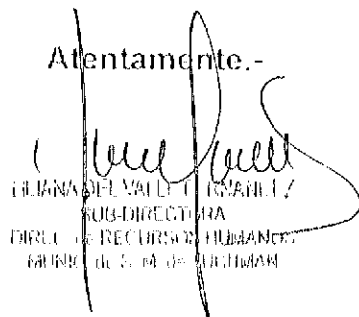 Atentamente.-
DEL VALLE
SUB-DIRECTORA
DIREC. de RECURSOS HUMANOS
MUNIC. de S. M. de TUCUMAN